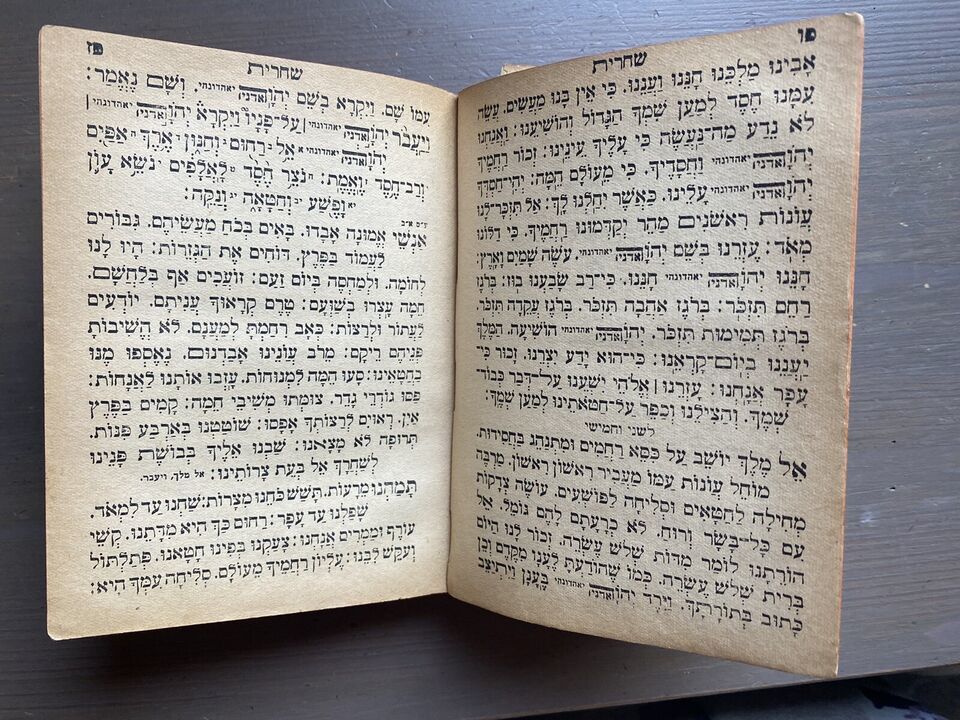 פו
שחרית
אָבִינוּ מַלְכֵּנוּ חָנֵּנוּ וַעֲנֵנוּ. כִּי אֵין בָּנוּ מַעֲשִׂים. עֲשֵׂה
עִמָּנוּ חֶסֶד לְמַעַן שִׁמְךָ הַגָּדוֹל וְהוֹשִׁיעֵנוּ: וַאֲנַחְנוּ
לֹא נֵדַע מַה־נַּעֲשֶׂה כִּי עָלֶיךָ עֵינֵינוּ: זְכוֹר רַחֲמֶיךָ
יְהֹוָה ואדניה יאהדונהי וַחֲסָדֶיךָ. כִּי מֵעוֹלָם הֵמָּה: יְהִי־חַסְדְּךָ
יְהֹוָה ואדניה יאהדונהי עָלֵינוּ. כַּאֲשֶׁר יִחַלְנוּ לָךְ: אַל תִּזְכָּר־לָנוּ
עֲוֹנוֹת רִאשֹׁנִים מַהֵר יְקַדְּמוּנוּ רַחֲמֶיךָ. כִּי דַלּוֹנוּ
מְאֹד: עֶזְרֵנוּ בְּשֵׁם יְהֹוָה ואדניה יאהדונהי. עֹשֵׂה שָׁמַיִם וָאָרֶץ:
חָנֵּנוּ יְהֹוָה ואדניה יאהדונהי חָנֵּנוּ. כִּי־רַב שָׂבַעְנוּ בוּז: בְּרֹגֶז
רַחֵם תִּזְכֹּר: בְּרֹגֶז אַהֲבָה תִּזְכֹּר. בְּרֹגֶז עֲקֵדָה תִּזְכֹּר.
בְּרֹגֶז תְּמִימוּת תִּזְכֹּר. יְהֹוָה ואדניה יאהדונהי הוֹשִׁיעָה. הַמֶּלֶךְ
יַעֲנֵנוּ בְיוֹם־קָרְאֵנוּ: כִּי־הוּא יָדַע יִצְרֵנוּ. זָכוּר כִּי־
עָפָר אֲנָחְנוּ: עָזְרֵנוּ | אֱלֹהֵי יִשְׁעֵנוּ עַל־דְּבַר כְּבוֹד־
שְׁמֶךָ. וְהַצִּילֵנוּ וְכַפֵּר עַל־חַטֹּאתֵינוּ לְמַעַן שְׁמֶךָ:
לשני וחמישי
אֵל מֶלֶךְ יוֹשֵׁב עַל כִּסֵּא רַחֲמִים וּמִתְנַהֵג בַּחֲסִידוּת.
מוֹחֵל עֲוֹנוֹת עַמּוֹ מַעֲבִיר רִאשׁוֹן רִאשׁוֹן. מַרְבֶּה
מְחִילָה לַחַטָּאִים וּסְלִיחָה לַפּוֹשְׁעִים. עוֹשֶׂה צְדָקוֹת
עִם כָּל־בָּשָׂר וְרוּחַ. לֹא כְרָעָתָם לָהֶם גּוֹמֵל. אֵל
הוֹרֵתָנוּ לוֹמַר מִדּוֹת שְׁלֹשׁ עֶשְׂרֵה. זְכוֹר לָנוּ הַיּוֹם
בְּרִית שְׁלֹשׁ עֶשְׂרֵה. כְּמוֹ שֶׁהוֹדַעְתָּ לֶעָנָו מִקֶּדֶם וְכֵן
כָּתוּב בְּתוֹרָתָךְ. וַיֵּרֶד יְהֹוָה ואדניה יאהדונהי בֶּעָנָן וַיִּתְיַצֵּב
פז
שחרית
עִמּוֹ שָׁם. וַיִּקְרָא בְשֵׁם יְהֹוָה ואדניה יאהדונהי. וְשָׁם נֶאֱמַר:
וַיַּעֲבֹר יְהֹוָה ואדניה יאהדונהי | עַל־פָּנָיו וַיִּקְרָא יְהֹוָה ואדניה יאהדונהי |
יְהֹוָה ואדניה יאהדונהי א אֵל ב רַחוּם ג וְחַנּוּן ד אֶרֶךְ ה אַפַּיִם
ו וְרַב־חֶסֶד ז וֶאֱמֶת: ח נֹצֵר חֶסֶד ט לָאֲלָפִים י נֹשֵׂא עָוֹן
יא וָפֶשַׁע יב וְחַטָּאָה יג וְנַקֵּה:
ע"פ א"ב
אַנְשֵׁי אֱמוּנָה אָבָדוּ. בָּאִים בְּכֹחַ מַעֲשֵׂיהֶם. גִּבּוֹרִים
לַעֲמוֹד בַּפֶּרֶץ. דּוֹחִים אֶת הַגְּזֵרוֹת: הָיוּ לָנוּ
לְחוֹמָה. וּלְמַחְסֶה בְּיוֹם זַעַם: זוֹעֲכִים אַף בְּלַחֲשָׁם.
חֵמָה עָצְרוּ בְּשַׁוְעָם: טֶרֶם קְרָאוּךָ עֲנִיתָם. יוֹדְעִים
לַעֲתוֹר וּלְרַצּוֹת: כְּאָב רִחַמְתָּ לְמַעֲנָם. לֹא הֱשִׁיבוֹתָ
פְּנֵיהֶם רֵיקָם: מֵרֹב עֲוֹנֵינוּ אֲבַדְנוּם. נֶאֶסְפוּ מֶנּוּ
בַּחֲטָאֵינוּ: סָעוּ הֵמָּה לַמְנוּחוֹת. עָזְבוּ אוֹתָנוּ לַאֲנָחוֹת:
פַּסּוּ גוֹדְרֵי גָדֵר. צֻמְּתוּ מְשִׁיבֵי חֵמָה: קָמִים בַּפֶּרֶץ
אָיִן. רְאוּיִם לְרַצּוֹתְךָ אָפֵסוּ: שׁוֹטַטְנוּ בְּאַרְבַּע פִּנּוֹת.
תְּרוּפָה לֹא מָצָאנוּ: שַׁבְנוּ אֵלֶיךָ בְּבוֹשֶׁת פָּנֵינוּ
לְשַׁחֲרָךְ אֵל בְּעֵת צָרוֹתֵינוּ: אל מלך. ויעבר.
תָּמַהְנוּ מֵרָעוֹת. תָּשַׁשׁ כֹּחֵנוּ מִצָּרוֹת: שַׁחְנוּ עַד לִמְאֹד.
שָׁפַלְנוּ עַד עָפָר: רַחוּם כָּךְ הִיא מִדָּתֵנוּ. קְשֵׁי
עוֹרֶף וּמַמְרִים אֲנַחְנוּ: צָעַקְנוּ בְּפִינוּ חָטָאנוּ. פְּתַלְתּוֹל
וְעִקֵּשׁ לִבֵּנוּ: עֶלְיוֹן רַחֲמֶיךָ מֵעוֹלָם. סְלִיחָה עִמְּךָ הִיא: